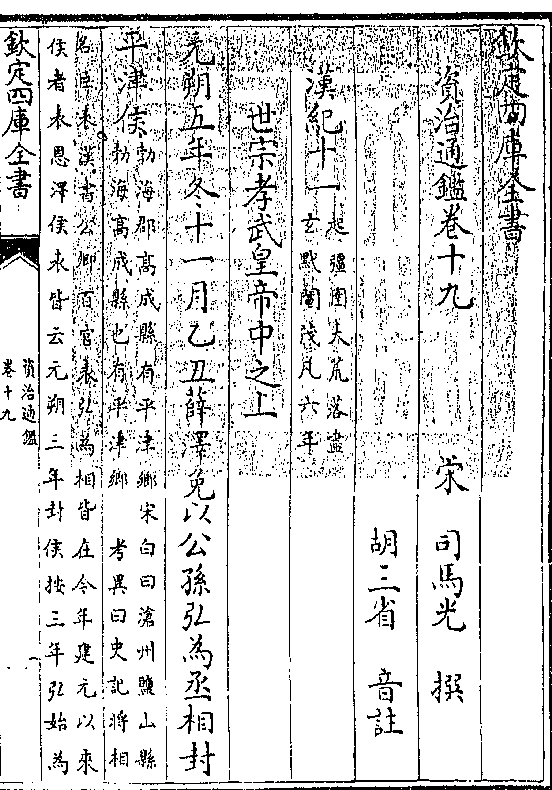 欽定四庫全書
資治通鑑卷十九
宋 司馬光 撰
胡三省 音註
漢紀十一
起彊圉大荒落盡
玄黓閹茂凡六年
世宗孝武皇帝中之上
元朔五年冬十一月乙丑薛澤免以公孫弘為丞相封
平津侯
勃海郡高成縣有平津鄉宋白曰滄州鹽山縣
勃海高成縣也有平津鄉 考異曰史記將相
名臣表漢書公卿百官表弘為相皆在今年建元以來
侯者表恩澤侯表皆云元朔三年封侯按三年弘始為
欽定四庫全書
資治通鑑
卷十九
一